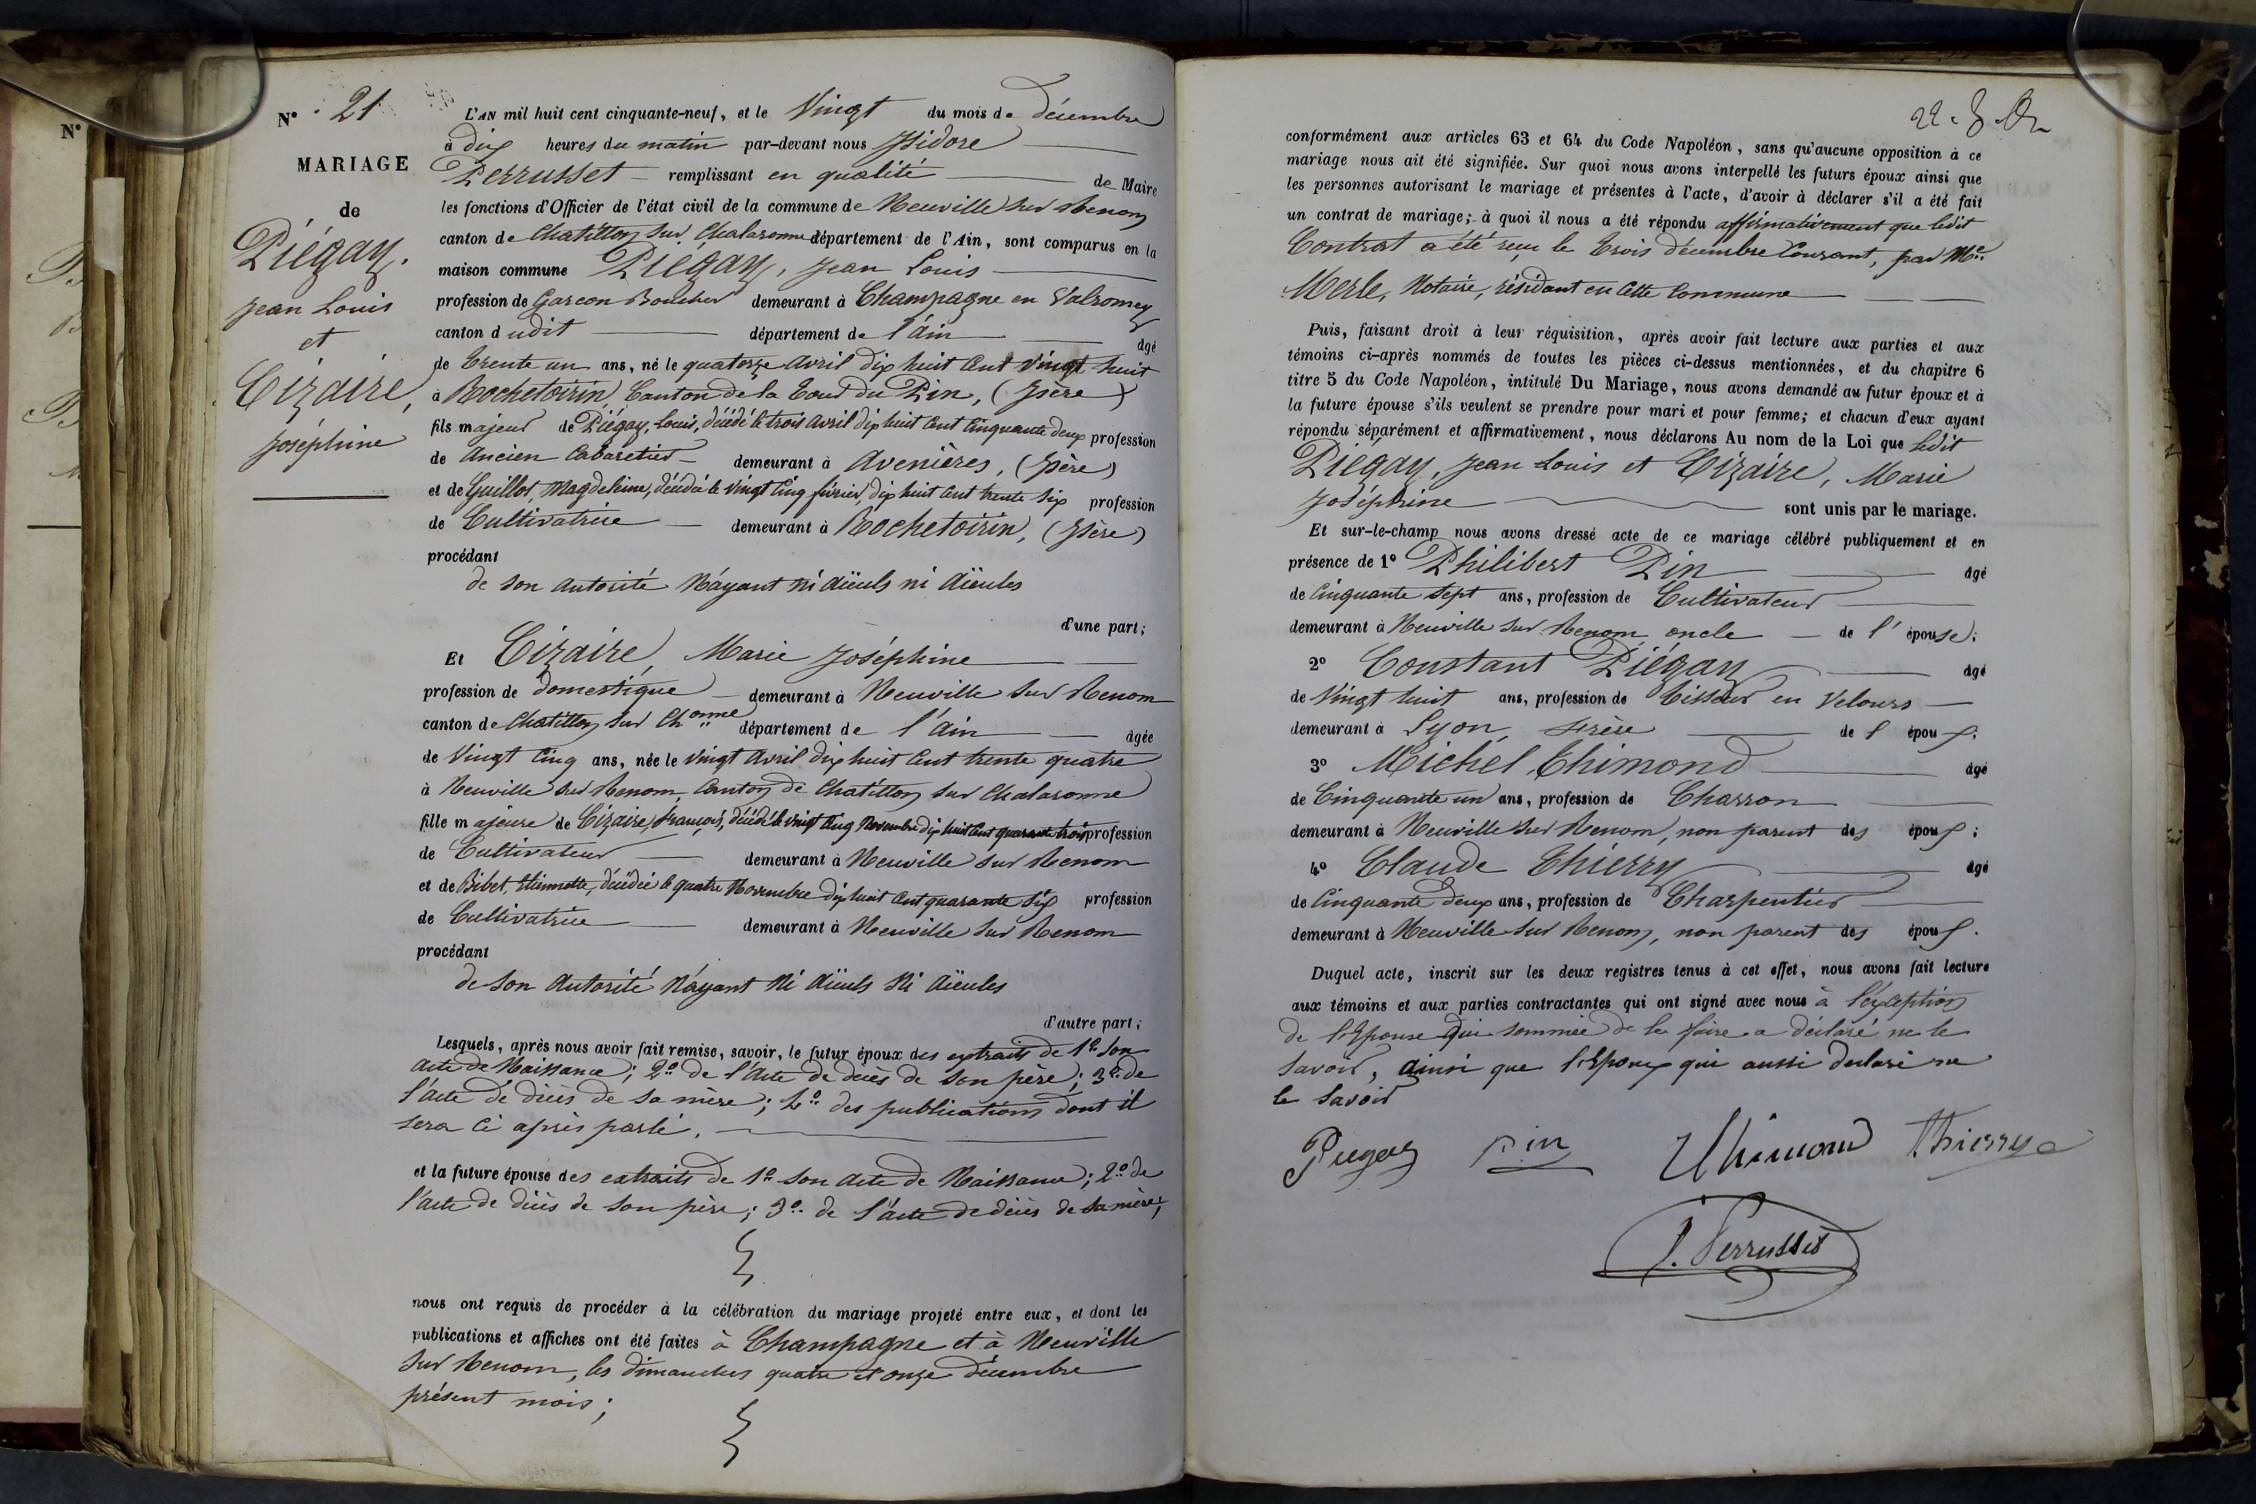 N° 21
MARIAGE
de
Piégay,
Jean Louis
et
Cizaire,
Joséphine
L'AN mil huit cent cinquante-neuf, et le Vingt du mois de décembre
à dix heures du matin par-devant nous Isidore
Perrusset remplissant en qualité de Maire
les fonctions d'Officier de l'état civil de la commune de Neuville sur Renom
canton de Chatillon sur Chalaronne département de l'Ain, sont comparus en la
maison commune Piégay, Jean Louis
profession de Garçon Boucher demeurant à Champagne en Valromey
canton dudit département de l'Ain âgé
de trente un ans, né le quatorze avril dix huit cent vingt huit
à Rochetoirin Canton de la Tour du Pin, (Isère)
fils majeur de Piégay, Louis, décédé le trois avril dix huit cent cinquante deux profession
de ancien Cabaretier demeurant à Avenières, (Isère)
et de Guillot, Magdeleine, décédée le vingt cinq février, dix huit cent trente six profession
de Cultivatrice demeurant à Rochetoirin, (Isère)
procédant
de son autorité n'ayant ni aïeuls ni aïeules
d'une part;
Et Cizaire, Marie Joséphine
profession de domestique demeurant à Neuville sur Renom
canton de Chatillon sur Chonne département de l'Ain âgée
de vingt cinq ans, née le vingt avril dix huit cent trente quatre
à Neuville sur Renom, Canton de Chatillon sur Chalaronne
fille majeure de Cizaire, François, décédé le vingt cinq novembre dix huit cent quarante trois profession
de Cultivateur demeurant à Neuville sur Renom
et de Bibet, Etiennette, décédée le quatre Novembre dix huit cent quarante six profession
de Cultivatrice demeurant à Neuville sur Renom
procédant
de son autorité n'ayant ni aïeuls ni aïeules
d'autre part;
Lesquels, après nous avoir fait remise, savoir, le futur époux des extraits de 1° son
acte de Naissance; 2° de l'acte de décès de son père; 3° de
l'acte de décès de sa mère; 4° des publications dont il
sera ci après parlé.
et la future épouse des extraits de 1° son acte de Naissance; 2° de
l'acte de décès de son père; 3° de l'acte de décès de sa mère;
nous ont requis de procéder à la célébration du mariage projeté entre eux, et dont les
publications et affiches ont été faites à Champagne et à Neuville
sur Renom, les dimanches quatre et onze décembre
présent mois;
conformément aux articles 63 et 64 du Code Napoléon, sans qu'aucune opposition à ce
mariage nous ait été signifiée. Sur quoi nous avons interpellé les futurs époux ainsi que
les personnes autorisant le mariage et présentes à l'acte, d'avoir à déclarer s'il a été fait
un contrat de mariage; à quoi il nous a été répondu affirmativement que ledit
Contrat a été reçu le trois décembre courant, par Me
Merle, Notaire, résidant en cette commune
Puis, faisant droit à leur réquisition, après avoir fait lecture aux parties et aux
témoins ci-après nommés de toutes les pièces ci-dessus mentionnées, et du chapitre 6
titre 5 du Code Napoléon, intitulé Du Mariage, nous avons demandé au futur époux et à
la future épouse s'ils veulent se prendre pour mari et pour femme; et chacun d'eux ayant
répondu séparément et affirmativement, nous déclarons Au nom de la Loi que Ledit
Piégay, Jean Louis et Cizaire, Marie
Joséphine sont unis par le mariage.
Et sur-le-champ nous avons dressé acte de ce mariage célébré publiquement et en
présence de 1° Philibert Pin âgé
de cinquante sept ans, profession de Cultivateur
demeurant à Neuville sur Renom, oncle de l'épouse;
2° Constant Piégay âgé
de vingt huit ans, profession de tisseur en velours
demeurant à Lyon, frère de l'époux;
3° Michel Thimond âgé
de Cinquante un ans, profession de Charron
demeurant à Neuville sur Renom, non parent des époux;
4° Claude Thierry âgé
de Cinquante deux ans, profession de Charpentier
demeurant à Neuville sur Renom, non parent des époux.
Duquel acte, inscrit sur les deux registres tenus à cet effet, nous avons fait lecture
aux témoins et aux parties contractantes qui ont signé avec nous à l'éxception
de l'Epouse qui sommée de le faire a déclaré ne le
savoir, ainsi que l'Epoux qui aussi déclaré ne
le savoir
Piegay Pin Thimond Thierry
J. Perrusset